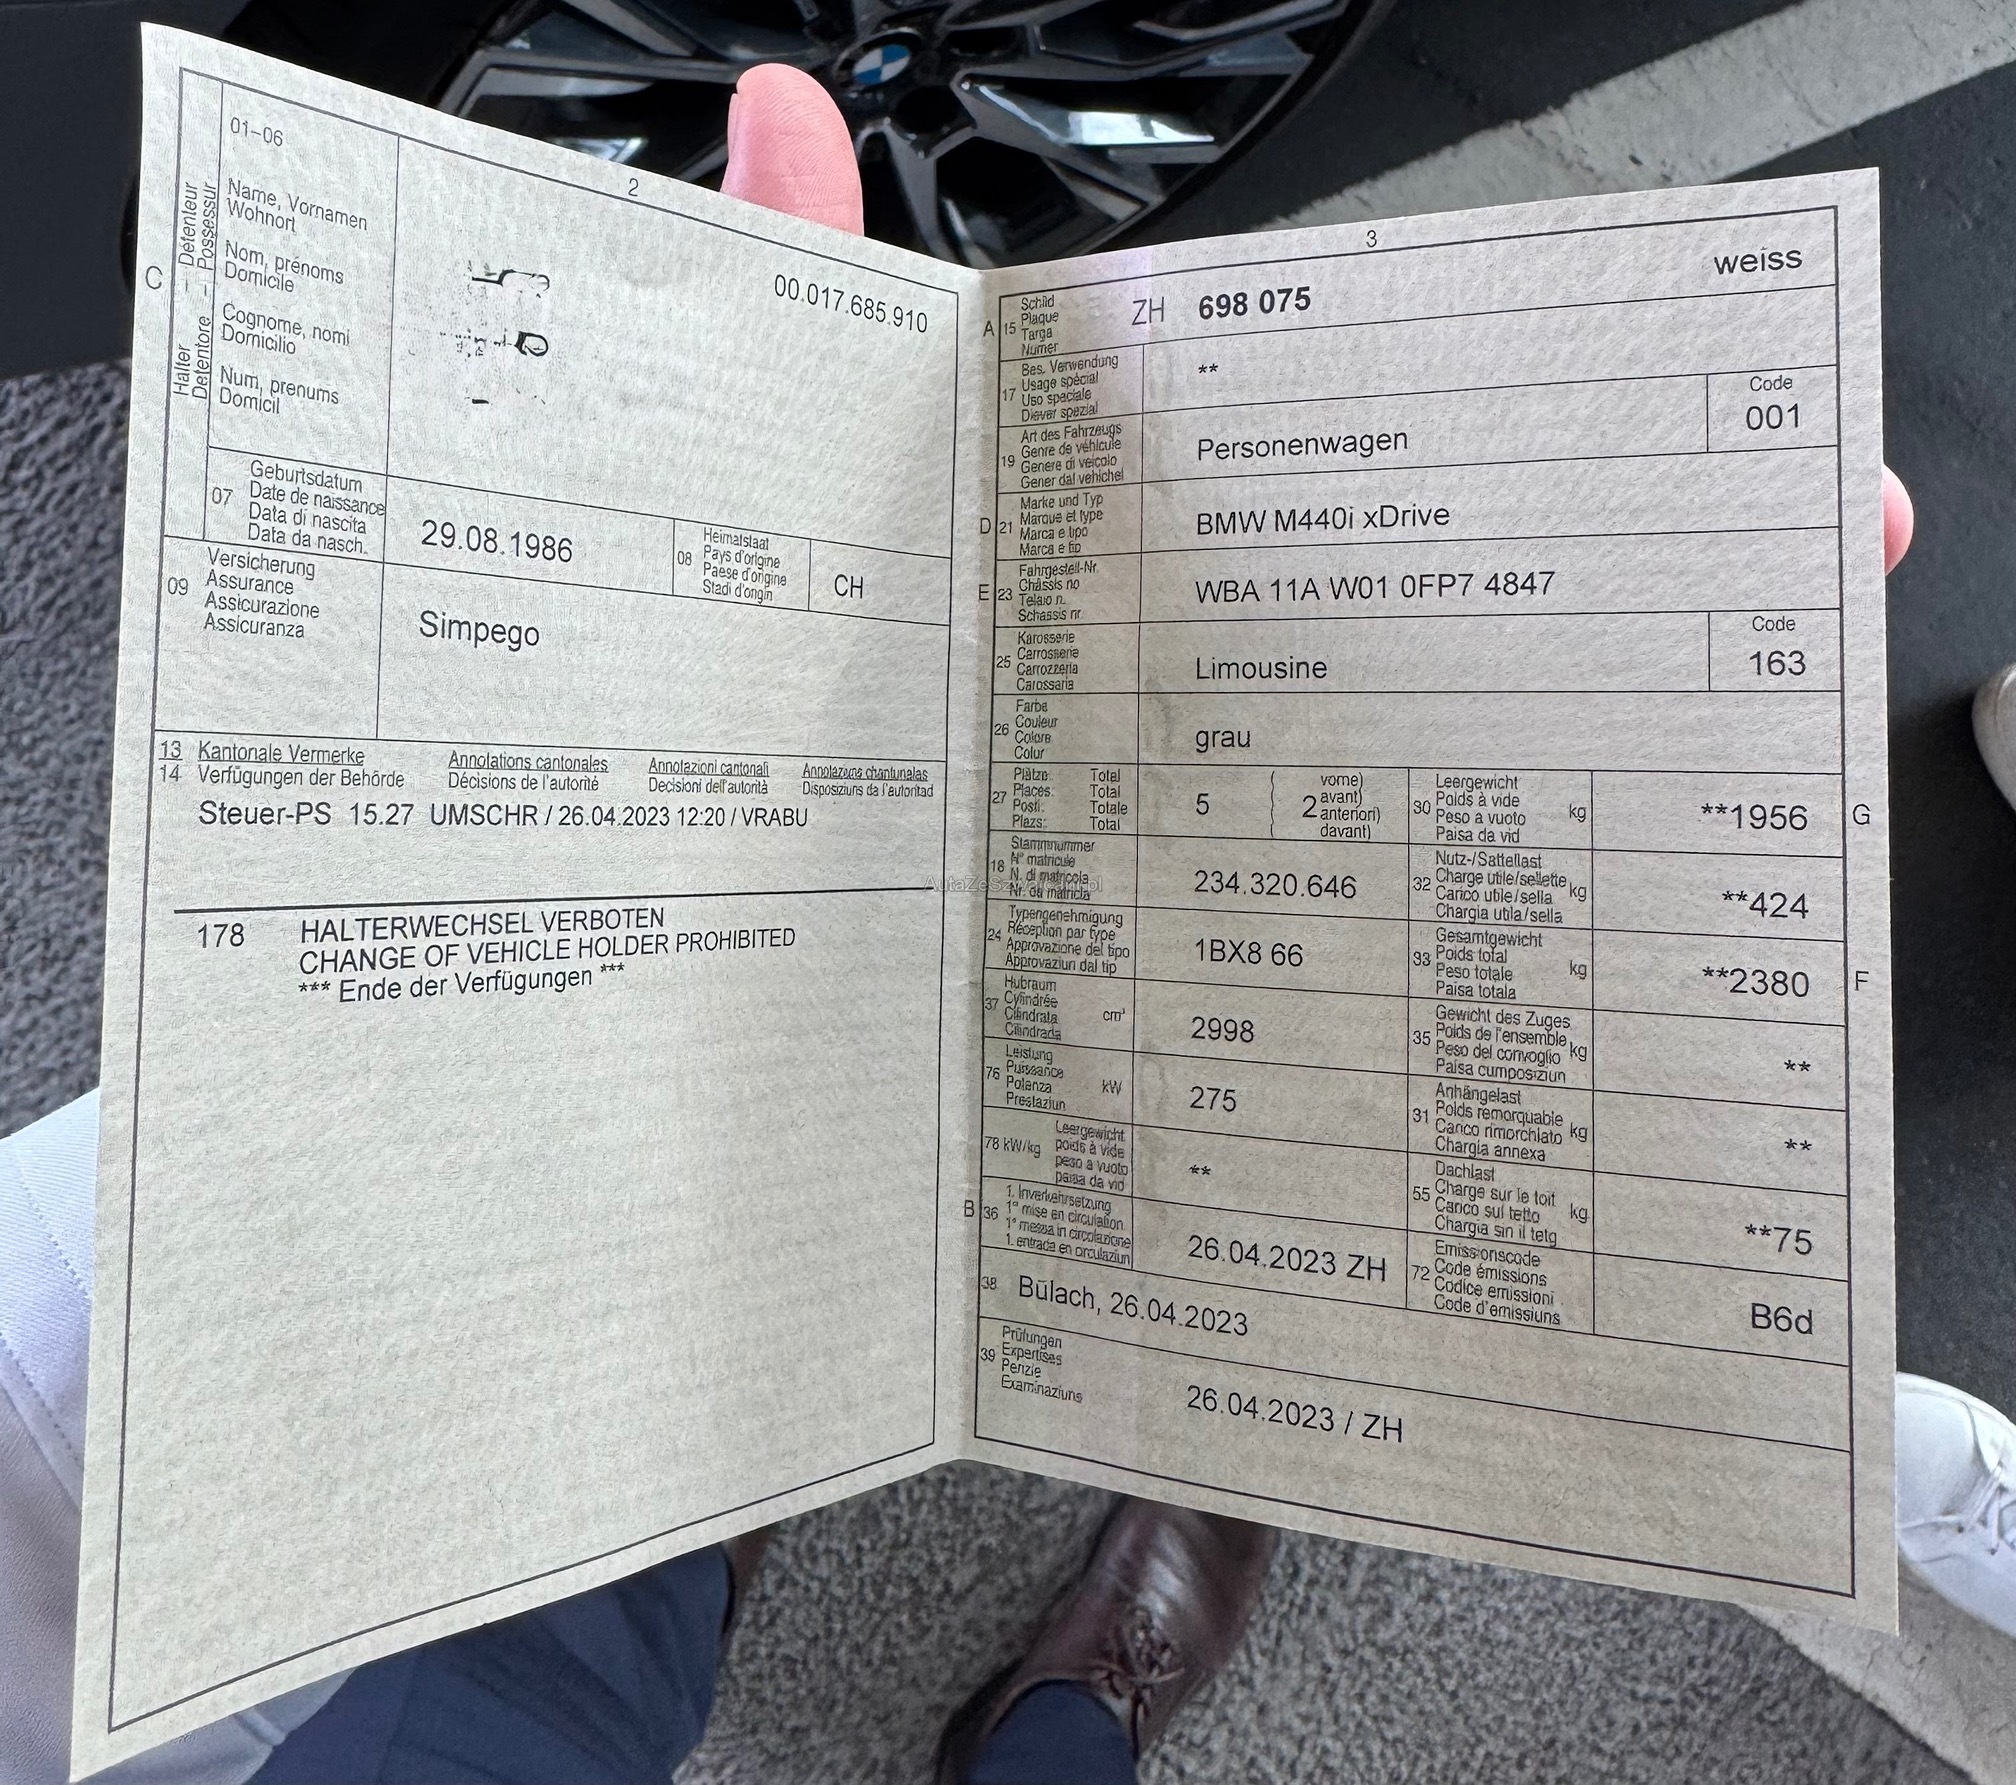 2
01-06
C
Halter – Détenteur
Detentore – Possessur
Name, Vornamen
Wohnort
Nom, prénoms
Domicile
Cognome, nomi
Domicilio
Num, prenums
Domicil
00.017.685.910
07
Geburtsdatum
Date de naissance
Data di nascita
Data da nasch.
29.08.1986
08
Heimatstaat
Pays d'origine
Paese d'origine
Stadi d'origin
CH
09
Versicherung
Assurance
Assicurazione
Assicuranza
Simpego
13 Kantonale Vermerke Annotations cantonales Annotazioni cantonali Annotaziuns chantunalas
14 Verfügungen der Behörde Décisions de l'autorité Decisioni dell'autorità Disposiziuns da l'autoritad
Steuer-PS 15.27 UMSCHR / 26.04.2023 12:20 / VRABU
178 HALTERWECHSEL VERBOTEN
CHANGE OF VEHICLE HOLDER PROHIBITED
*** Ende der Verfügungen ***
3
A 15
Schild
Plaque
Targa
Numer
ZH 698 075
weiss
17
Bes. Verwendung
Usage spécial
Uso speciale
Diever spezial
**
19
Art des Fahrzeugs
Genre de véhicule
Genere di veicolo
Gener dal vehichel
Personenwagen
Code
001
D 21
Marke und Typ
Marque et type
Marca e tipo
Marca e tip
BMW M440i xDrive
E 23
Fahrgestell-Nr.
Châssis no
Telaio n.
Schassis nr.
WBA 11A W01 0FP7 4847
25
Karosserie
Carrosserie
Carrozzeria
Carossaria
Limousine
Code
163
26
Farbe
Couleur
Colore
Colur
grau
27
Plätze: Total
Places: Total
Posti: Totale
Plazs: Total
5
( 2
vorne)
avant)
anteriori)
davant)
30
Leergewicht
Poids à vide
Peso a vuoto
Paisa da vid
kg
**1956
G
18
Stammnummer
N° matricule
N. di matricola
Nr. da matricla
234.320.646
32
Nutz-/Sattellast
Charge utile/sellette
Carico utile/sella
Chargia utila/sella
kg
**424
24
Typengenehmigung
Réception par type
Approvazione del tipo
Approvaziun dal tip
1BX8 66
33
Gesamtgewicht
Poids total
Peso totale
Paisa totala
kg
**2380
F
37
Hubraum
Cylindrée
Cilindrata
Cilindrada
cm³
2998
35
Gewicht des Zuges
Poids de l'ensemble
Peso del convoglio
Paisa cumposiziun
kg
**
76
Leistung
Puissance
Potenza
Prestaziun
kW
275
31
Anhängelast
Poids remorquable
Carico rimorchiato
Chargia annexa
kg
**
78 kW/kg
Leergewicht
poids à vide
peso a vuoto
paisa da vid
**
55
Dachlast
Charge sur le toit
Carico sul tetto
Chargia sin il tetg
kg
**75
B 36
1. Inverkehrsetzung
1re mise en circulation
1a messa in circolazione
1. entrada en circulaziun
26.04.2023 ZH
72
Emissionscode
Code émissions
Codice emissioni
Code d'emissiuns
B6d
38
Bülach, 26.04.2023
39
Prüfungen
Expertises
Perizie
Examinaziuns
26.04.2023 / ZH
AutaZeSzwajcarii.pl